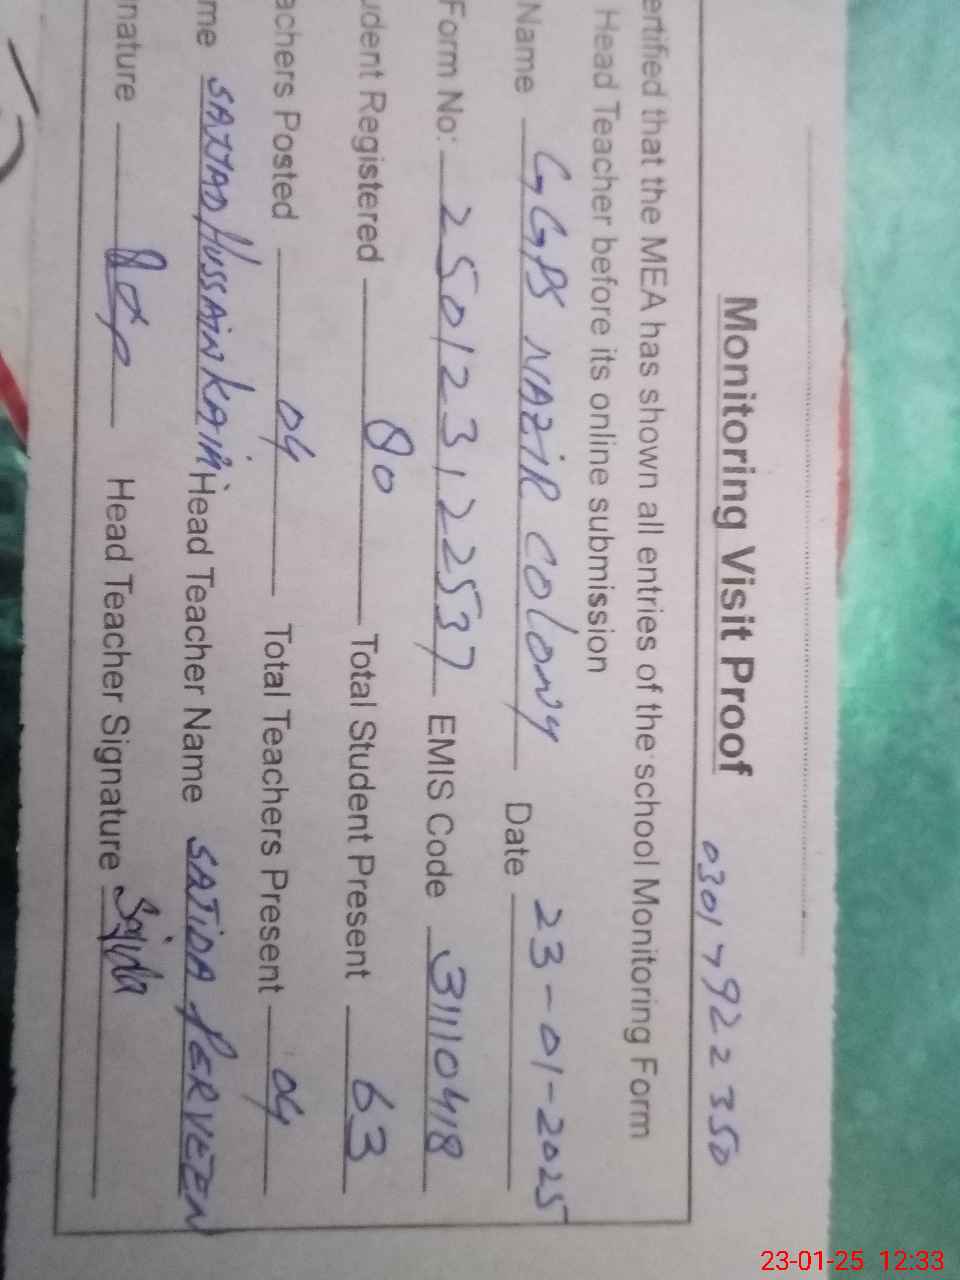 Monitoring Visit Proof 03017922350
ertified that the MEA has shown all entries of the school Monitoring Form
Head Teacher before its online submission
Name GGPS NAZIR COLONY Date 23-01-2025
Form No: 250123122537 EMIS Code 31110418
udent Registered 80 Total Student Present 63
achers Posted 04 Total Teachers Present 04
me SAJJAD HUSSAIN KAIM Head Teacher Name SAJIDA PERVEEN
nature Head Teacher Signature Sajida
23-01-25 12:33